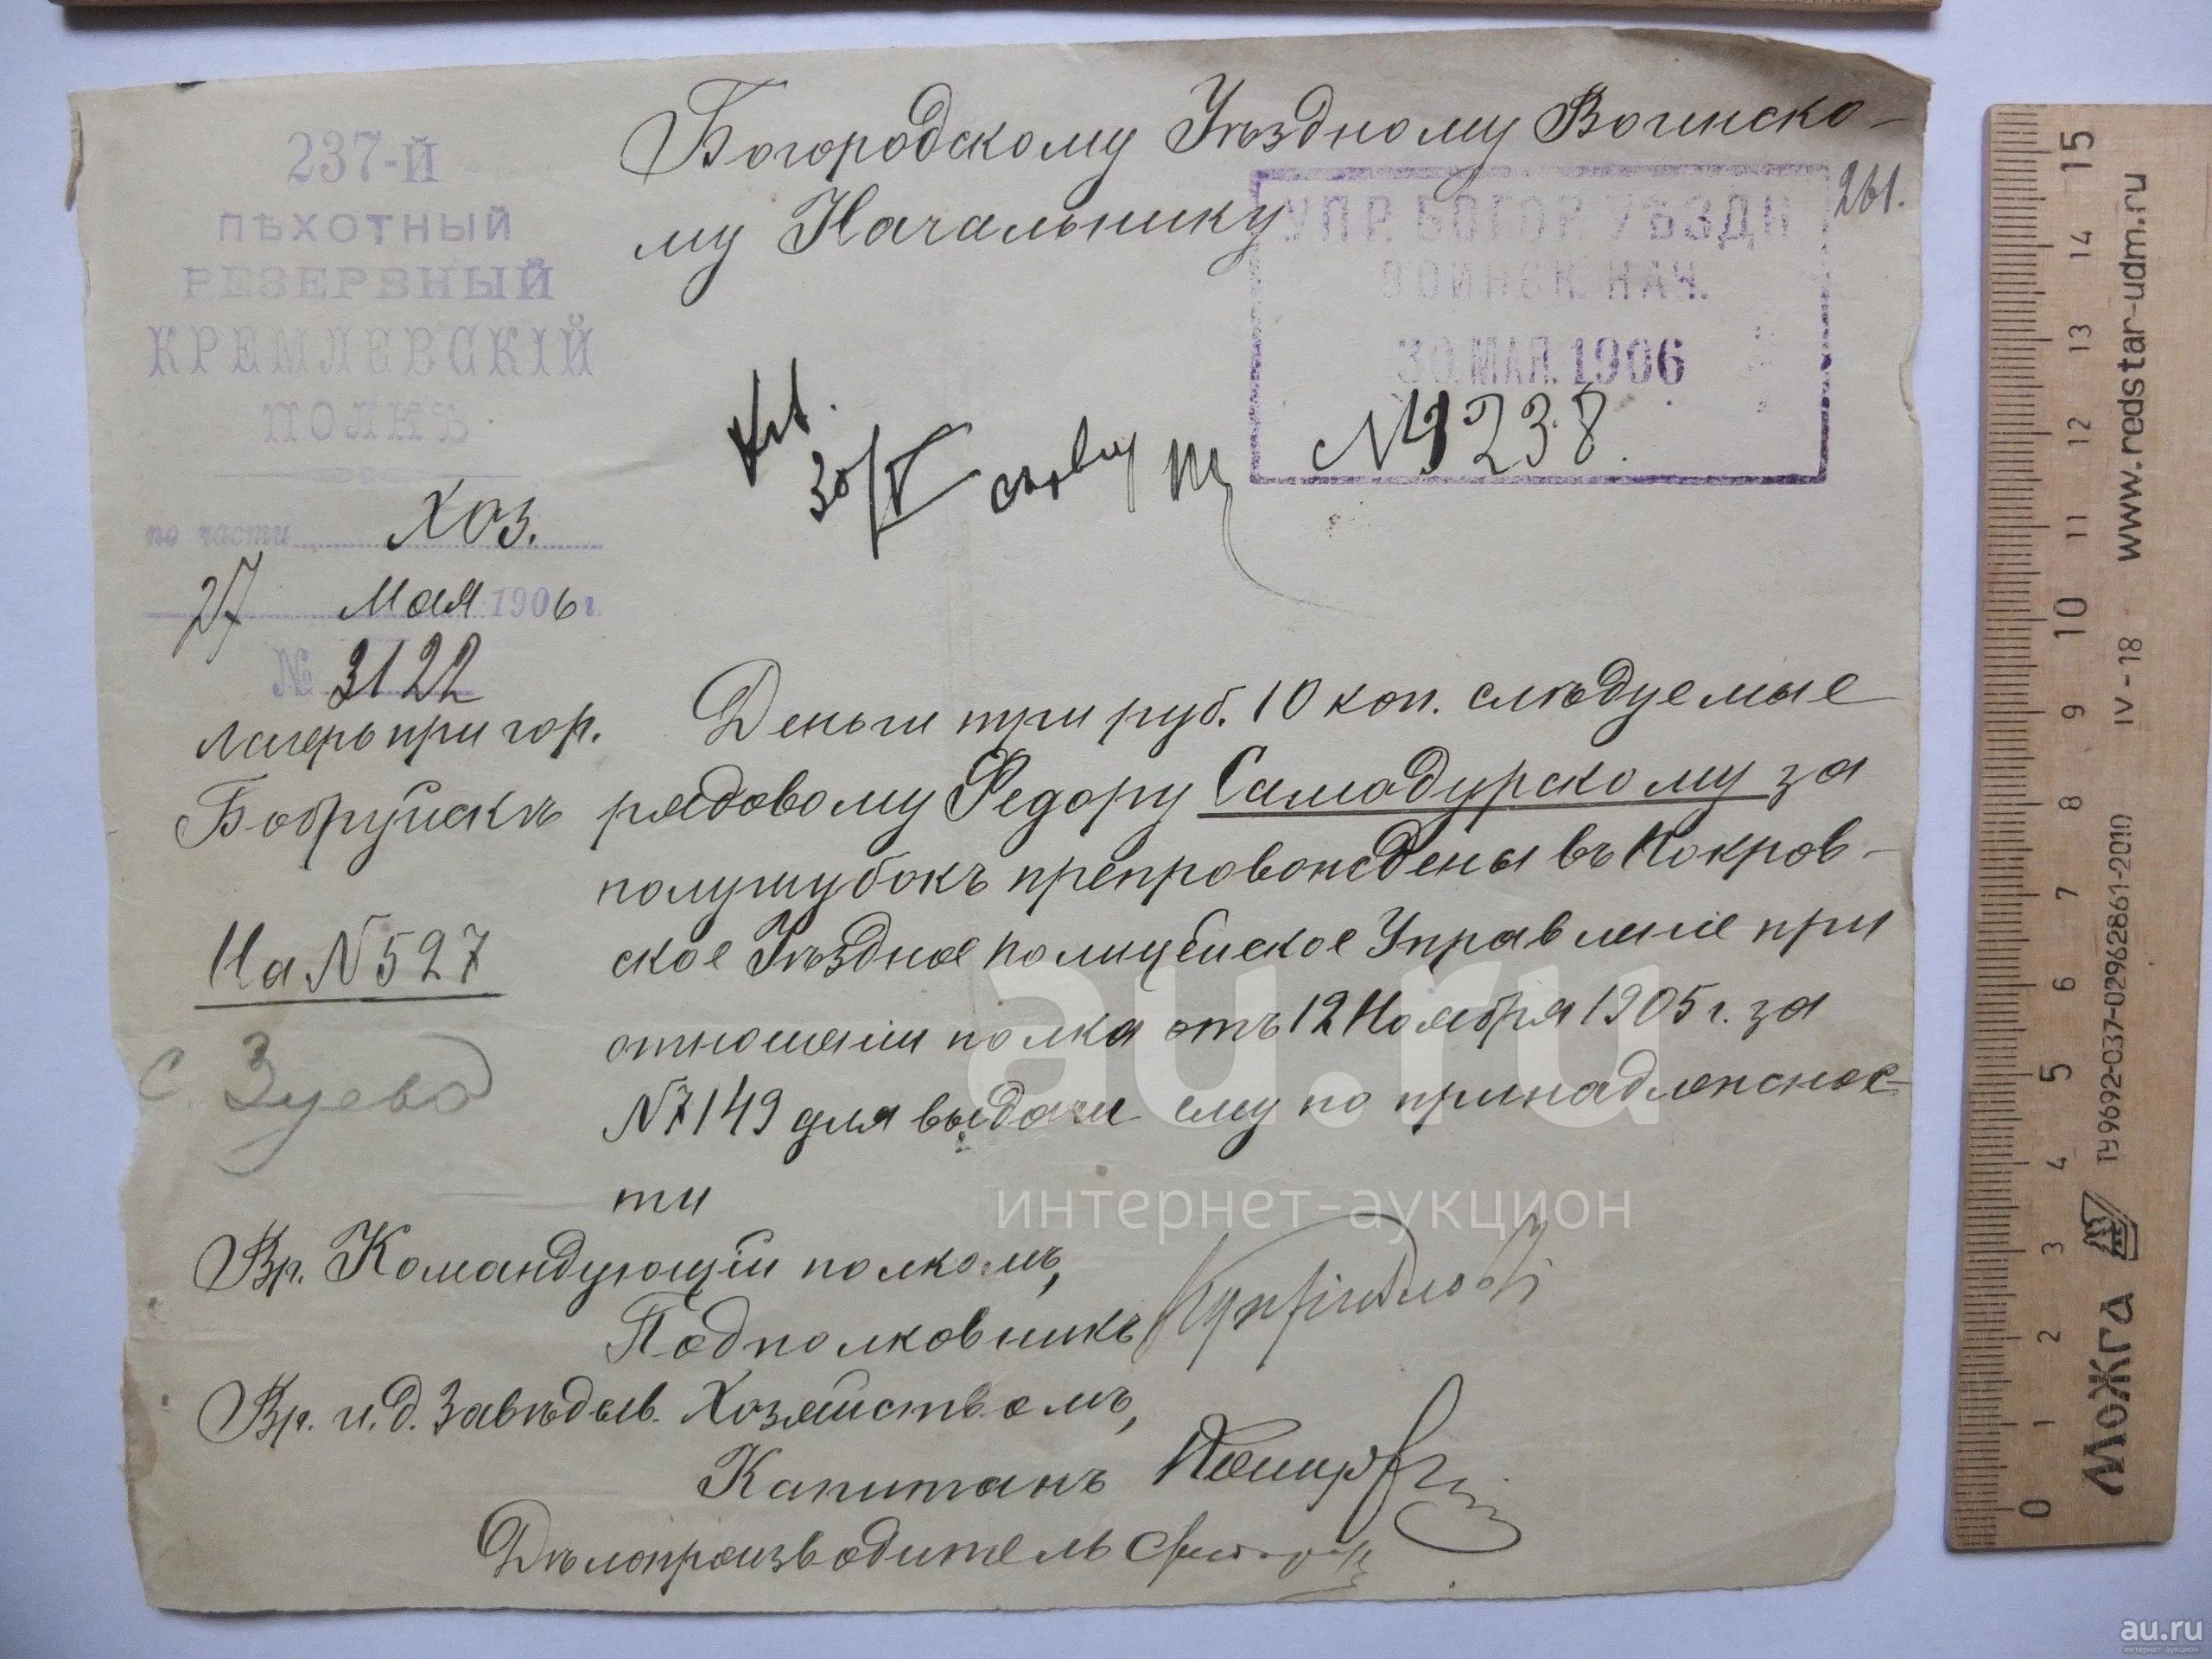 237-Й
ПѢХОТНЫЙ
РЕЗЕРВНЫЙ
КРЕМЛЕВСКІЙ
ПОЛКЪ
по части Хоз.
27 Мая 1906 г.
№ 3122
Лагерь при гор.
Бобруйскѣ
На №527
с Зуево
Богородскому Уѣздному Воинско-
му Начальнику
261.
УПР. БОГОР. УѢЗДН
ВОИНСК. НАЧ.
30.МАЯ.1906
№ 3238.
30/V
Деньги три руб. 10 коп. слѣдуемые
рядовому Федору Самодурскому за
полушубокъ препровождены въ Покров-
ское Уѣздное Полицейское Управленіе при
отношеніи полка отъ 12 Ноября 1905 г. за
№7149 для выдачи ему по принадлежнос-
ти
Вр. Командующій полкомъ,
Подполковникъ
Вр. и.д. Завѣдыв. Хозяйствомъ,
Капитанъ
Дѣлопроизводитель
au.ru
интернет-аукцион
15
14
13
12
11
10
9
8
7
6
5
4
3
2
1
0
www.redstar-udm.ru
IV-18
ТУ 9692-037-02962861-2010
МОЖГА
au.ru
интернет-аукцион